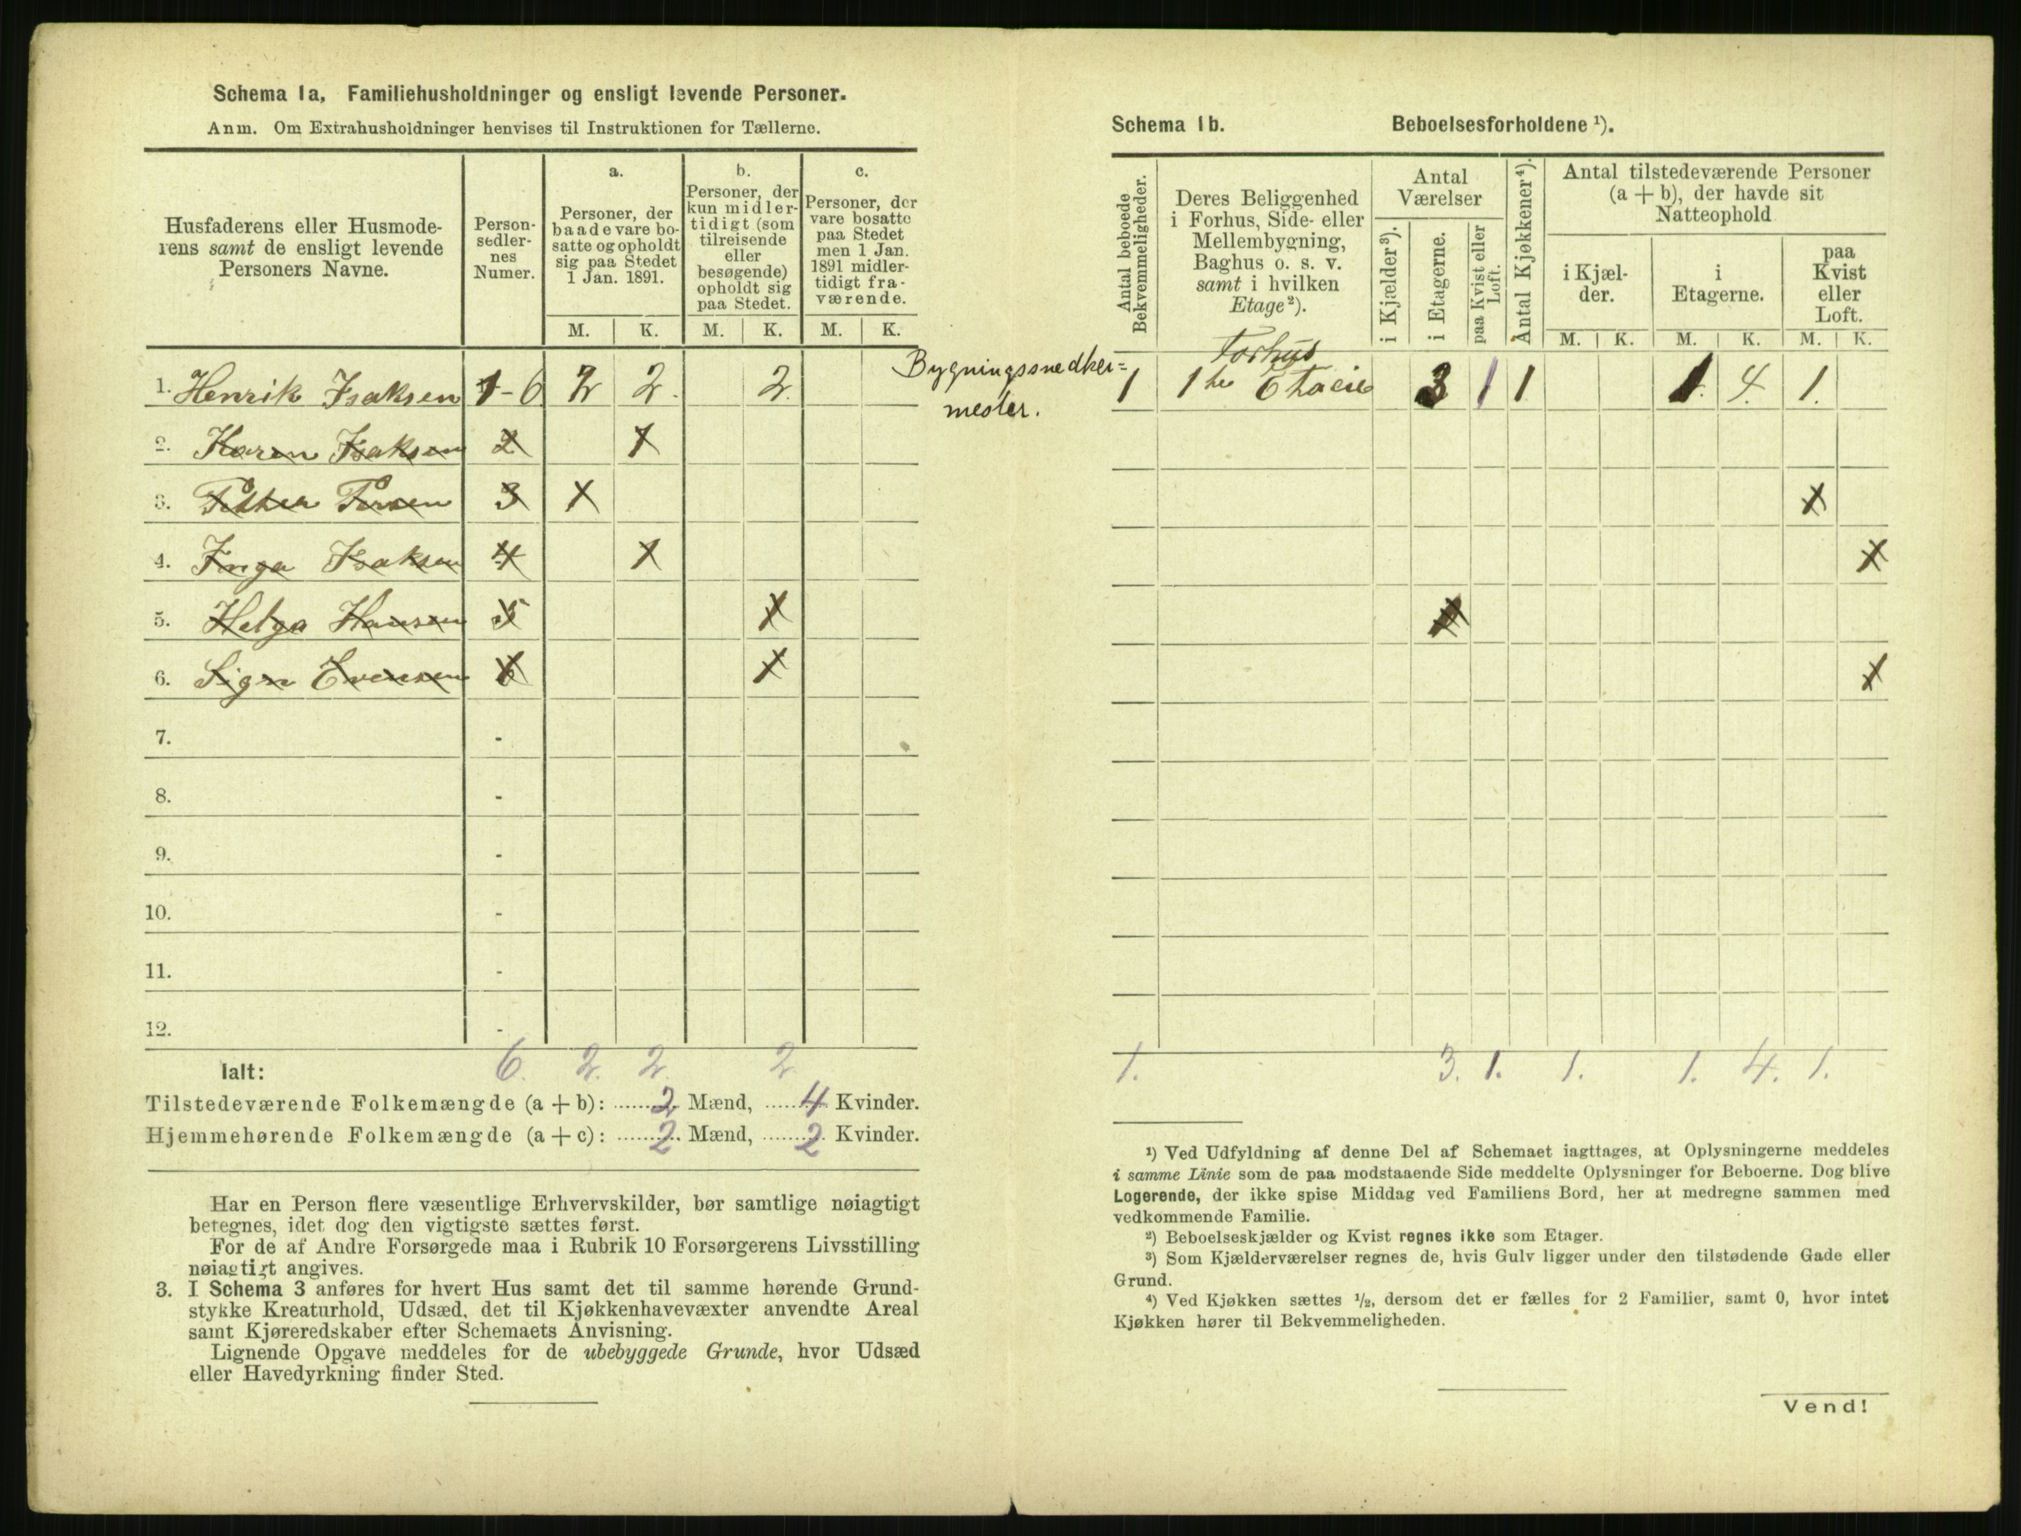 Schema 1a, Familiehusholdninger og ensligt levende Personer.
Anm. Om Extrahusholdninger henvises til Instruktionen for Tællerne.
Husfaderens eller Husmode-
rens samt de ensligt levende
Personers Navne.
Person-
sedler-
nes
Numer.
a.
Personer, der
baade vare bo-
satte og opholdt
sig paa Stedet
1 Jan. 1891.
b.
Personer, der
kun midler-
tidigt (som
tilreisende
eller
besøgende)
opholdt sig
paa Stedet.
c.
Personer, der
vare bosatte
paa Stedet
men 1 Jan.
1891 midler-
tidigt fra-
værende.
M. K. M. K. M. K.
1. Henrik Isaksen 1-6 2 2. 2. Bygningssnedker=
mester.
2. Karen Isaksen 2 1
3. Petter Persen 3 1
4. Inga Isaksen 4 1
5. Helga Hansen 5 1
6. Sign Evensen 6 1
7. -
8. -
9. -
10. -
11. -
12. -
Ialt: 6. 2. 2. 2
Tilstedeværende Folkemængde (a + b): 2 Mænd, 4 Kvinder.
Hjemmehørende Folkemængde (a + c): 2 Mænd, 2 Kvinder.
Har en Person flere væsentlige Erhvervskilder, bør samtlige nøiagtigt
betegnes, idet dog den vigtigste sættes først.
For de af Andre Forsørgede maa i Rubrik 10 Forsørgerens Livsstilling
nøiagtigt angives.
3. I Schema 3 anføres for hvert Hus samt det til samme hørende Grund-
stykke Kreaturhold, Udsæd, det til Kjøkkenhavevæxter anvendte Areal
samt Kjøreredskaber efter Schemaets Anvisning.
Lignende Opgave meddeles for de ubebyggede Grunde, hvor Udsæd
eller Havedyrkning finder Sted.
Schema 1b. Beboelsesforholdene ¹).
Antal beboede
Bekvemmeligheder.
Deres Beliggenhed
i Forhus, Side- eller
Mellembygning,
Baghus o. s. v.
samt i hvilken
Etage²).
Antal
Værelser
i Kjælder³).
i Etagerne.
paa Kvist eller
Loft.
Antal Kjøkkener⁴).
Antal tilstedeværende Personer
(a + b), der havde sit
Natteophold
i Kjæl-
der.
i
Etagerne.
paa
Kvist
eller
Loft.
M. K. M. K. M. K.
Forhus
1 1ste Etage 3 1 1 1. 4. 1.
1
1
1
1. 3. 1. 1. 1. 4. 1.
¹) Ved Udfyldning af denne Del af Schemaet iagttages, at Oplysningerne meddeles
i samme Linie som de paa modstaaende Side meddelte Oplysninger for Beboerne. Dog blive
Logerende, der ikke spise Middag ved Familiens Bord, her at medregne sammen med
vedkommende Familie.
²) Beboelseskjælder og Kvist regnes ikke som Etager.
³) Som Kjælderværelser regnes de, hvis Gulv ligger under den tilstødende Gade eller
Grund.
⁴) Ved Kjøkken sættes ½, dersom det er fælles for 2 Familier, samt 0, hvor intet
Kjøkken hører til Bekvemmeligheden.
Vend!